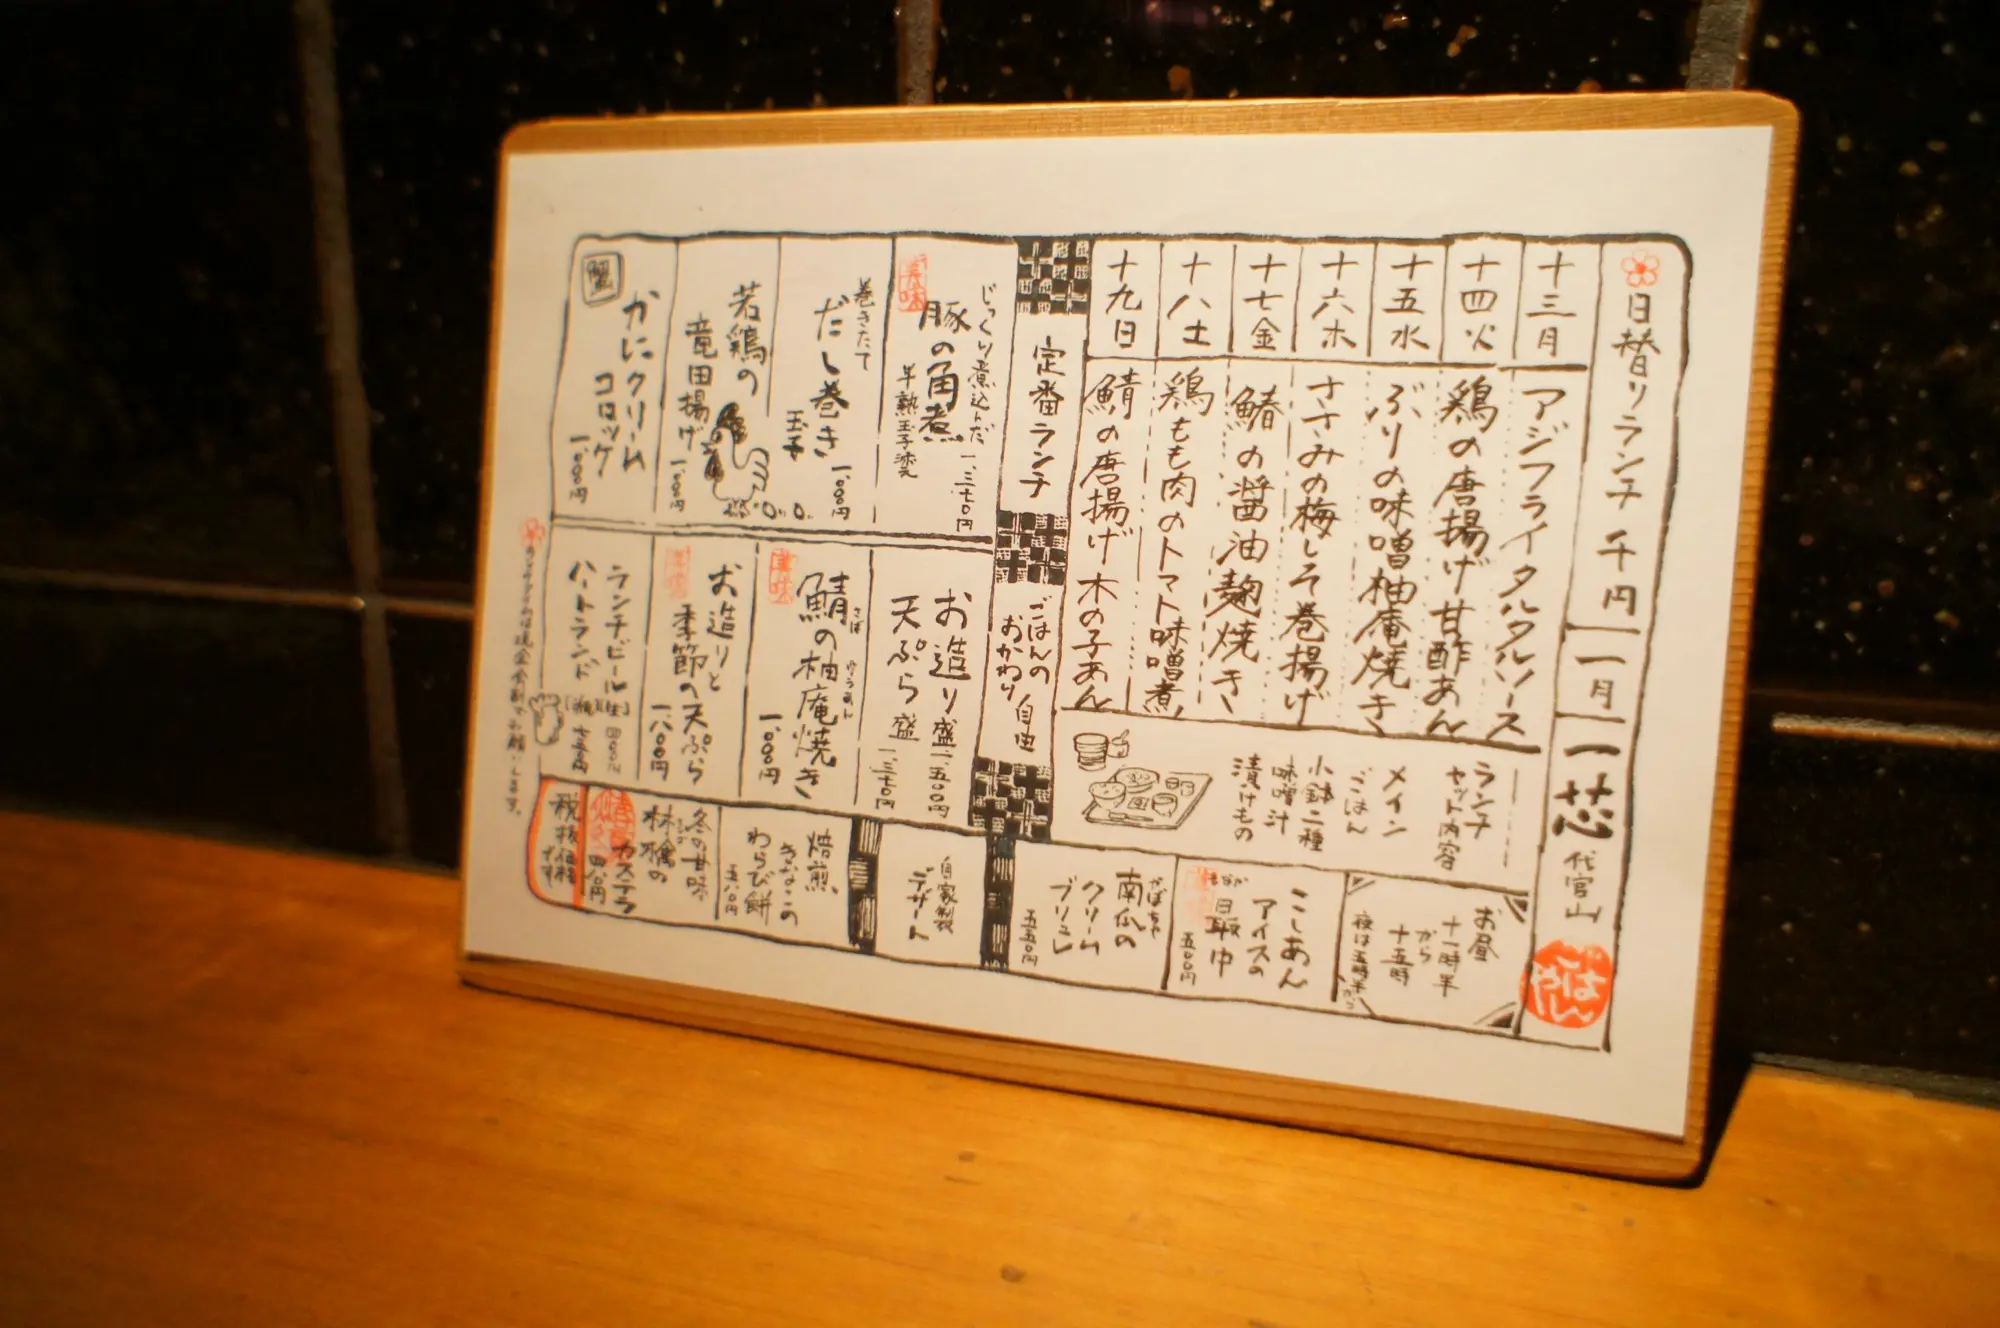 日替りランチ 千円
一月
一芯
代官山
ごはん
十三月
アジフライタルタルソース
十四火
鶏の唐揚げ甘酢あん
十五水
ぶりの味噌柚庵焼き
十六木
ささみの梅しそ巻揚げ
十七金
鰆の醤油麹焼き
十八土
鶏もも肉のトマト味噌煮
十九日
鯖の唐揚げ木の子あん
ランチ
セット内容
メイン
ごはん
小鉢二種
味噌汁
漬けもの
お昼
十一時半
から
十五時
夜は五時半から
定番ランチ
ごはんの
おかわり
自由
じっくり煮込んだ
豚の角煮
半熟玉子添え
一、三七〇円
美味
巻きたて
だし巻き
玉子
一、〇〇〇円
若鶏の
竜田揚げ
一、〇〇〇円
蟹
かにクリーム
コロッケ
一、〇〇〇円
お造り盛
二、五〇〇円
天ぷら盛
一、三七〇円
美味
鯖の柚庵焼き
さば
ゆうあん
一、〇〇〇円
お造りと
季節の天ぷら
一、八〇〇円
ランチビール
ハートランド
こしあん
アイスの
もなか
最中
五〇〇円
かぼちゃ
南瓜の
クリーム
ブリュレ
五五〇円
自家製
デザート
焙煎
きなこの
わらび餅
五八〇円
冬の甘味
林檎の
カステラ
税抜価格
です